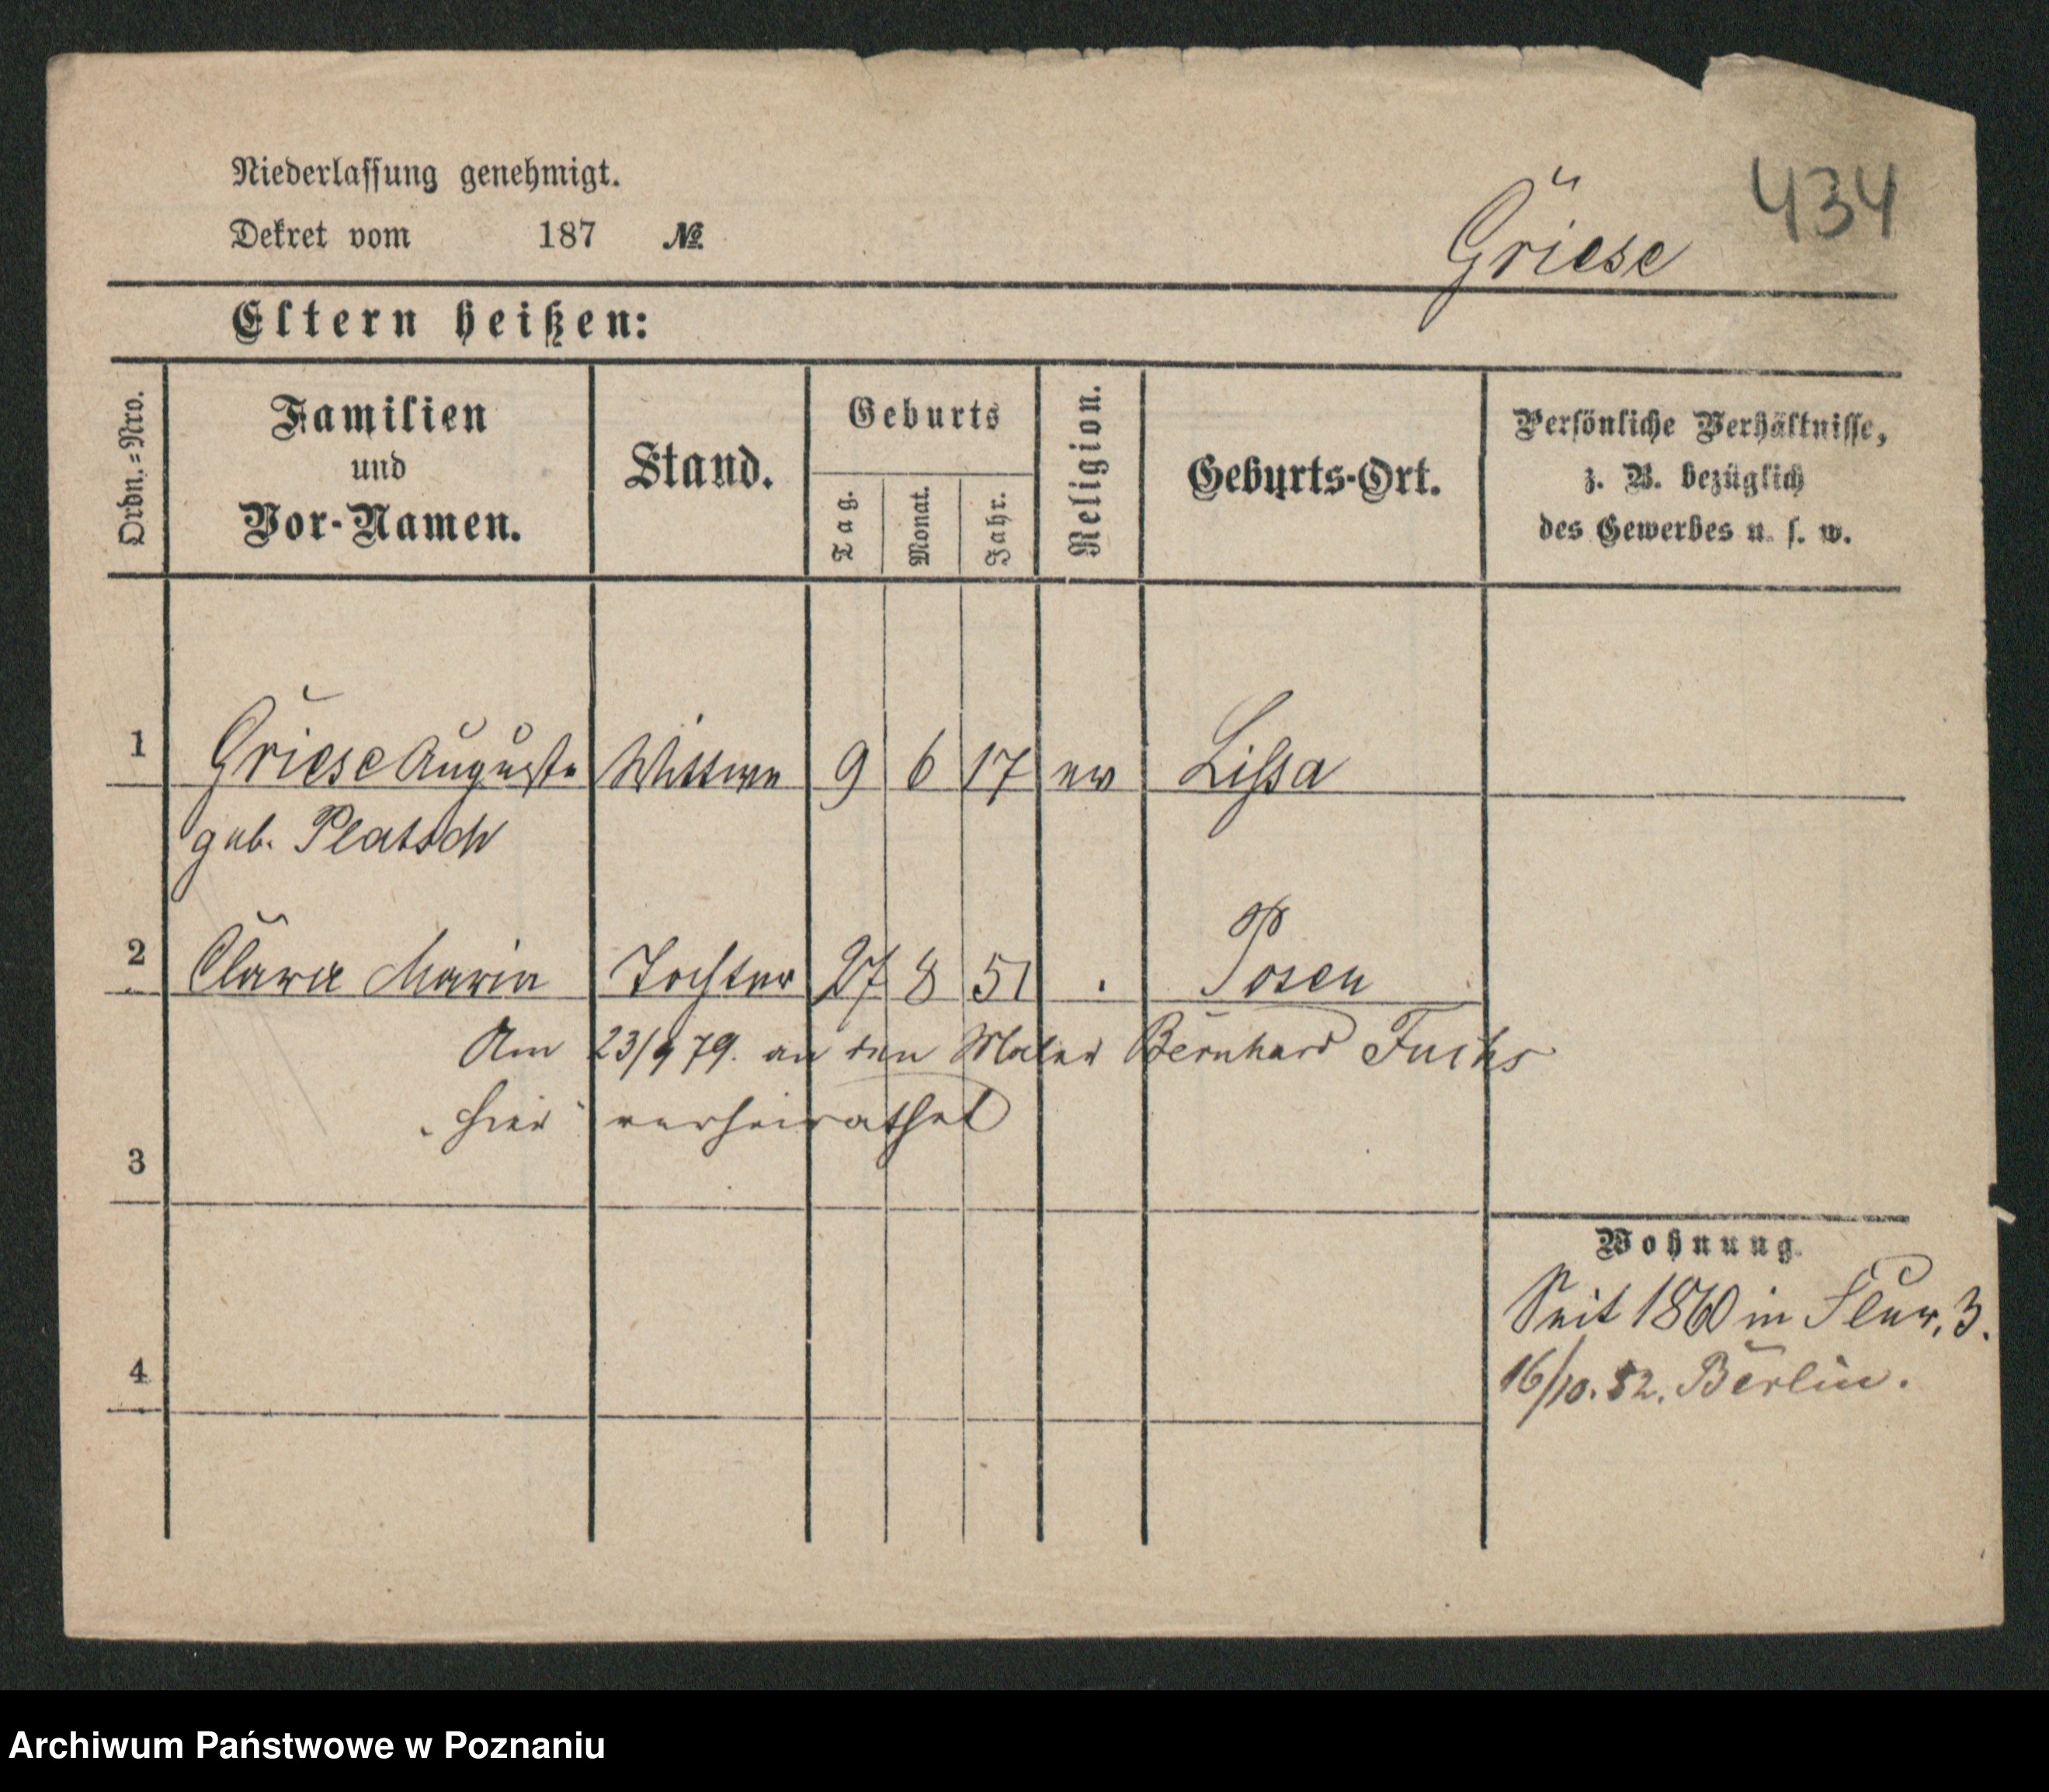 434
Niederlassung genehmigt.
Dekret vom 187 №
Griese
Eltern heißen:
Ordn.=Nro.
Familien
und
Vor-Namen.
Stand.
Geburts
Tag.
Monat.
Jahr.
Religion.
Geburts-Ort.
Persönliche Verhältnisse,
z. B. bezüglich
des Gewerbes u. s. w.
1 Griese Auguste Wittwe 9 6 17 ev Lissa
geb. Platsch
2 Clara Maria Tochter 27 8 51 . Posen
Am 23/9 79. an den Maler Bernhard Fuchs
hier verheirathet
3
Wohnung.
Seit 1860 in 3.
16/10. 82. Berlin.
4
Archiwum Państwowe w Poznaniu